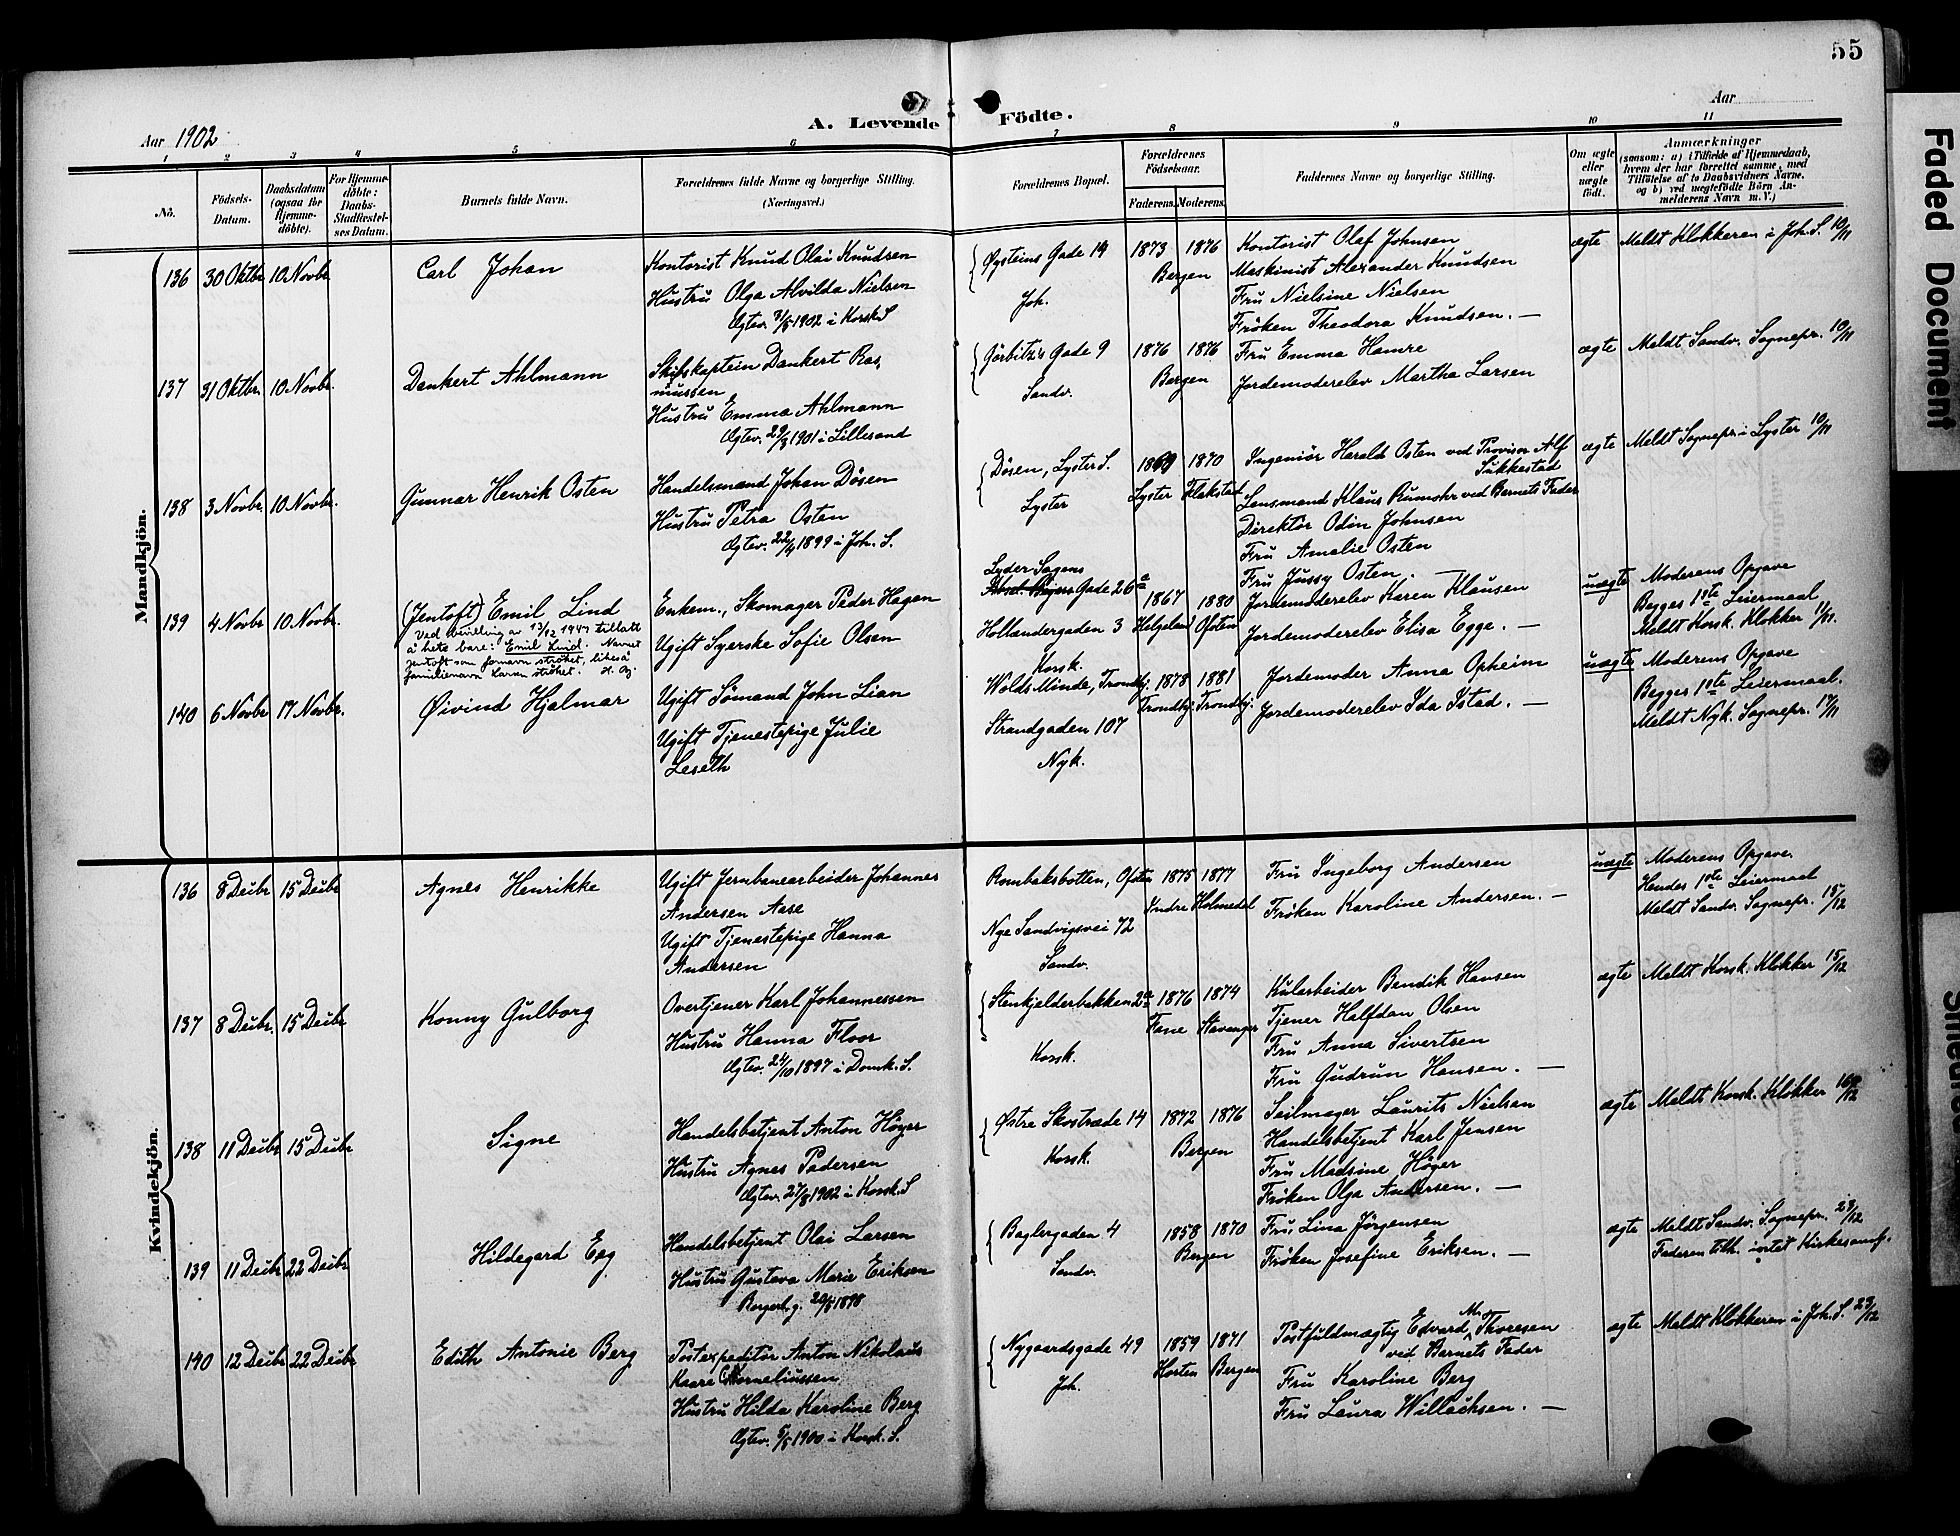 55
Aar 1902
A. Levende Födte.
Aar
1 2 3 4 5 6 7 8 9 10 11
No.
Födsels-Datum.
Daabsdatum (ogsaa for Hjemme-döbte).
For Hjemme-döbte: Daabs-Stadfæstel-ses Datum.
Barnets fulde Navn.
Forældrenes fulde Navne og borgerlige Stilling.
(Næringsvei.)
Forældrenes Bopæl.
Forældrenes Födselsaar.
Faderens. Moderens.
Faddernes Navne og borgerlige Stilling.
Om ægte eller uægte födt.
Anmærkninger
(saasom: a) i Tilfælde af Hjemmedaab, hvem der har forrettet samme, med Tilföielse af to Daabsvidners Navne, og b) ved uægtefödte Börn Anmelderens Navn m. V.)
Mandkjön.
136 30 Oktbr 10 Novbr. Carl Johan
Kontorist Knud Olai Knudsen
Hustru Olga Alvilda Nielsen
Ægtev. 3/5 1902 i Korsk. S
Øysteins Gade 19
Joh.
1873 1876
Bergen
Kontorist Olaf Johnsen
Maskinist Alexander Knudsen
Fru Nielsine Nielsen
Fröken Theodora Knudsen. —
ægte Meldt Klokkeren i Joh. S. 10/11
137 31 Oktbr. 10 Novbr. Dankert Ahlmann
Skibskaptein Dankert Ras,
mussen
Hustru Emma Ahlmann
Ægtev. 29/8 1901 i Lillesand
Görbitz's Gade 9
Sandv.
1876 1876
Bergen
Fru Emma Hamre
Jordemoderelev Martha Larsen
ægte Meldt Sandv. Sognepr. 10/11
138 3 Novbr. 10 Novbr. Gunnar Henrik Osten
Handelsmand Johan Dösen
Hustru Petra Osten
Ægtev. 22/4 1899 i Joh. S.
Dösen, Lyster S.
Lyster
1869 1870
Lyster Flakstad
Ingeniör Harald Osten ved Provisor Alf
Sukkestad
Lensmand Klaus Rumohr ved Barnets Fader
Direktör Odin Johnsen
Fru Amalie Osten
Fru Jussy Osten. —
ægte Meldt Sognepr. i Lyster 10/11
139 4 Novbr 10 Novbr. (Jentoft) Emil Lind
Ved bevilling av 13/12 1947 tillatt
å hete bare: Emil Lind. Navnet
Jentoft som fornavn strøket, likeså
familienavn Larsen strøket.
Enkem., Skomager Peder Hagen
Ugift Syerske Sofie Olsen
Lyder Sagens
Gade 26 a
Hollændergaden 3
Korsk.
1867 1880
Helgeland Ofoten
Jordemoderelev Karen Klausen
Jordemoderelev Elisa Egge. —
uægte Moderens Opgave
Begges 1ste Leiermaal
Meldt Korsk. Klokker 11/11.
140 6 Novbr 17 Novbr. Øivind Hjalmar
Ugift Sömand John Lian
Ugift Tjenestepige Julie
Leseth
Wolds Minde, Trondhj.
Strandgaden 107
Nyk.
1878 1881
Trondhj. Trondhj.
Jordemoder Anna Opheim
Jordemoderelev Ida Istad. —
uægte Moderens Opgave
Begges 1ste Leiermaal.
Meldt Nyk. Sognepr. 17/11
Kvindekjön.
136 8 Decbr 15 Decbr Agnes Henrikke
Ugift Jernbanearbeider Johannes
Andersen Aase
Ugift Tjenestepige Hanna
Andersen
Rombaksbotten, Ofoten
Nye Sandvigsvei 72
Sandv.
1875 1877
Indre Holmedal
Fru Ingeborg Andersen
Fröken Karoline Andersen. —
uægte Moderens Opgave.
Hendes 1ste Leiermaal
Meldt Sandv. Sognepr. 15/12
137 8 Decbr. 15 Decbr Konny Gulborg
Overtjener Karl Johannessen
Hustru Hanna Floor
Ægtev. 24/10 1897 i Domk. S.
Stenkjelderbakken 2a
Korsk.
1876 1874
Fane Stavanger
Kularbeider Bendik Hansen
Tjener Halfdan Olsen
Fru Anna Sivertsen
Fru Gudrun Hansen. —
ægte Meldt Korsk. Klokker 15/12
138 11 Decbr 15 Decbr Signe
Handelsbetjent Anton Höyer
Hustru Agnes Pedersen
Ægtev. 27/8 1902 i Korsk. S
Østre Skostræde 14
Korsk.
1872 1876
Bergen
Seilmager Laurits Nielsen
Handelsbetjent Karl Jensen
Fru Madsine Höyer
Fröken Olga Andersen. —
ægte Meldt Korsk. Klokker 16/12
139 11 Decbr 22 Decbr Hildegard Eeg
Handelsbetjent Olai Larsen
Hustru Gustava Marie Eriksen
Borgerl. g. 20/5 1898
Baglergaden 4
Sandv.
1858 1870
Bergen
Fru Lina Jörgensen
Fröken Josefine Eriksen. —
ægte Meldt Sandv. Sognepr. 23/12
Faderen tilh. intet Kirkesamf.
140 12 Decbr 22 Decbr Edith Antonie Berg
Postexpeditör Anton Nikolaus
Kaare Corneliussen
Hustru Hilda Karoline Berg
Ægtev. 5/5 1900 i Korsk. S.
Nygaardsgade 49
Joh.
1859 1871
Horten Bergen
Postfuldmægtig Edvard M. Thoresen
ved Barnets Fader
Fru Karoline Berg
Fru Laura Willachsen. —
ægte Meldt Klokkeren i Joh. S. 23/12
Faded Document